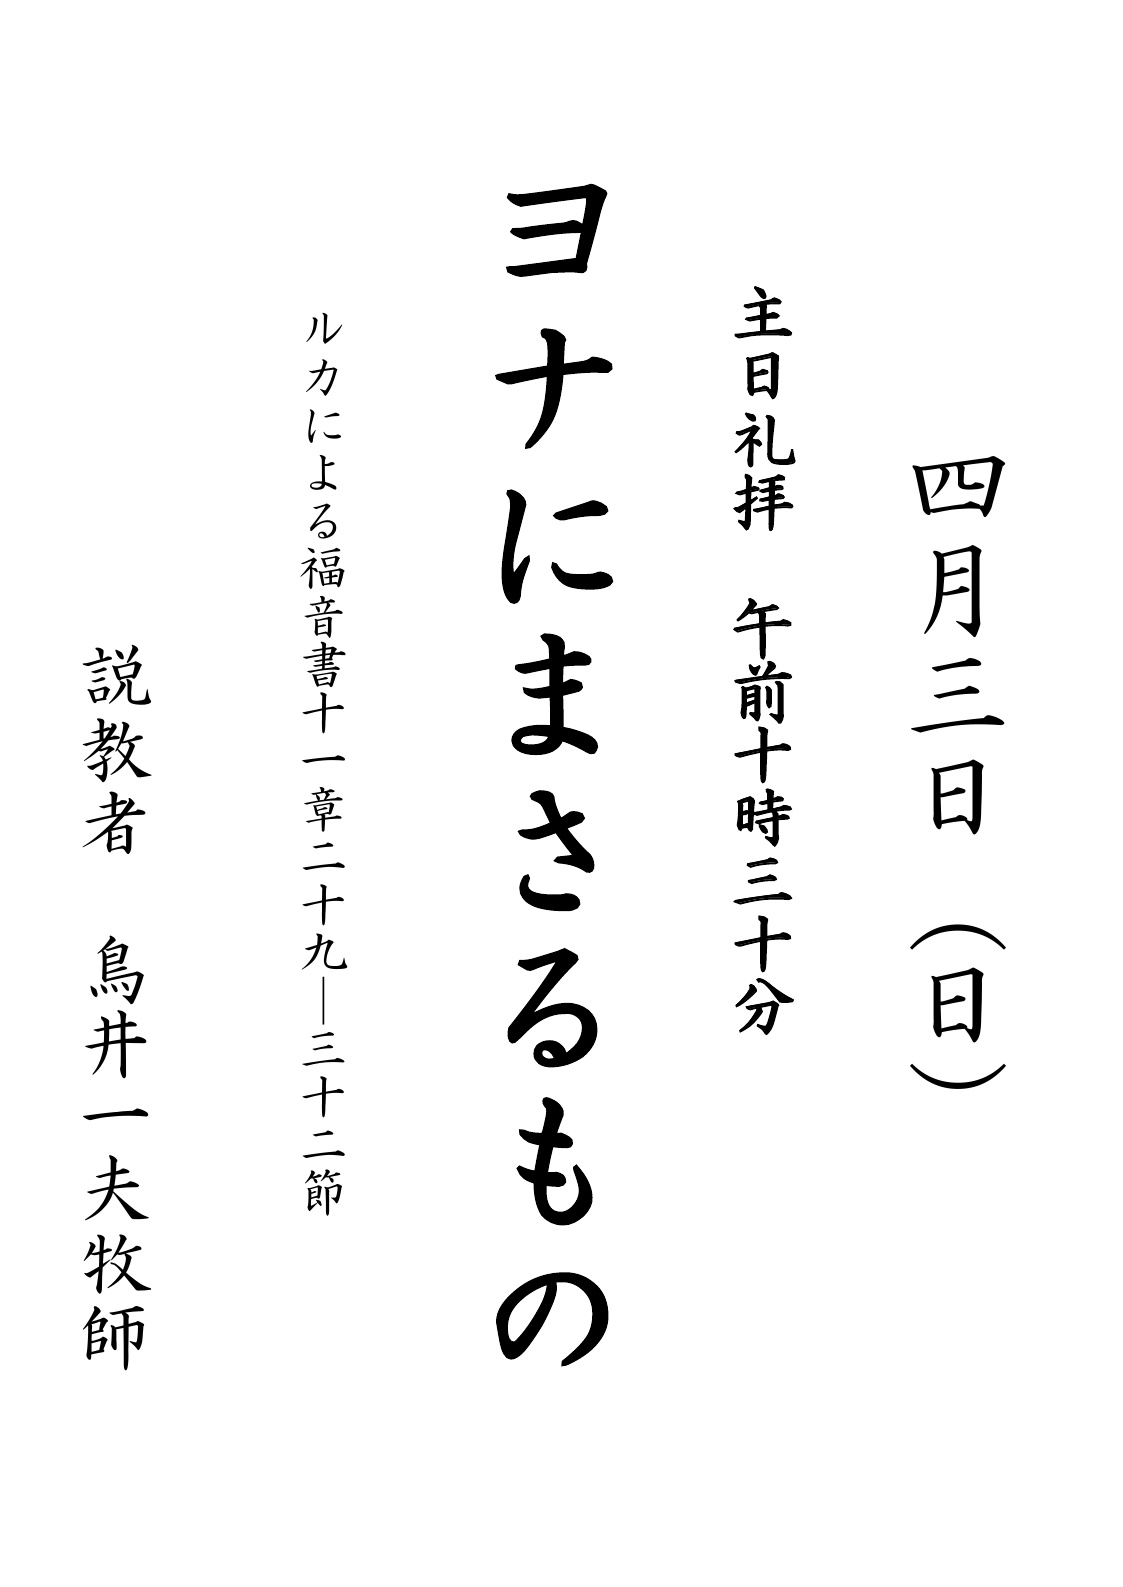 四月三日　（日）
主日礼拝　午前十時三十分
ヨナにまさるもの
ルカによる福音書十一章二十九―三十二節
説教者　鳥井一夫牧師